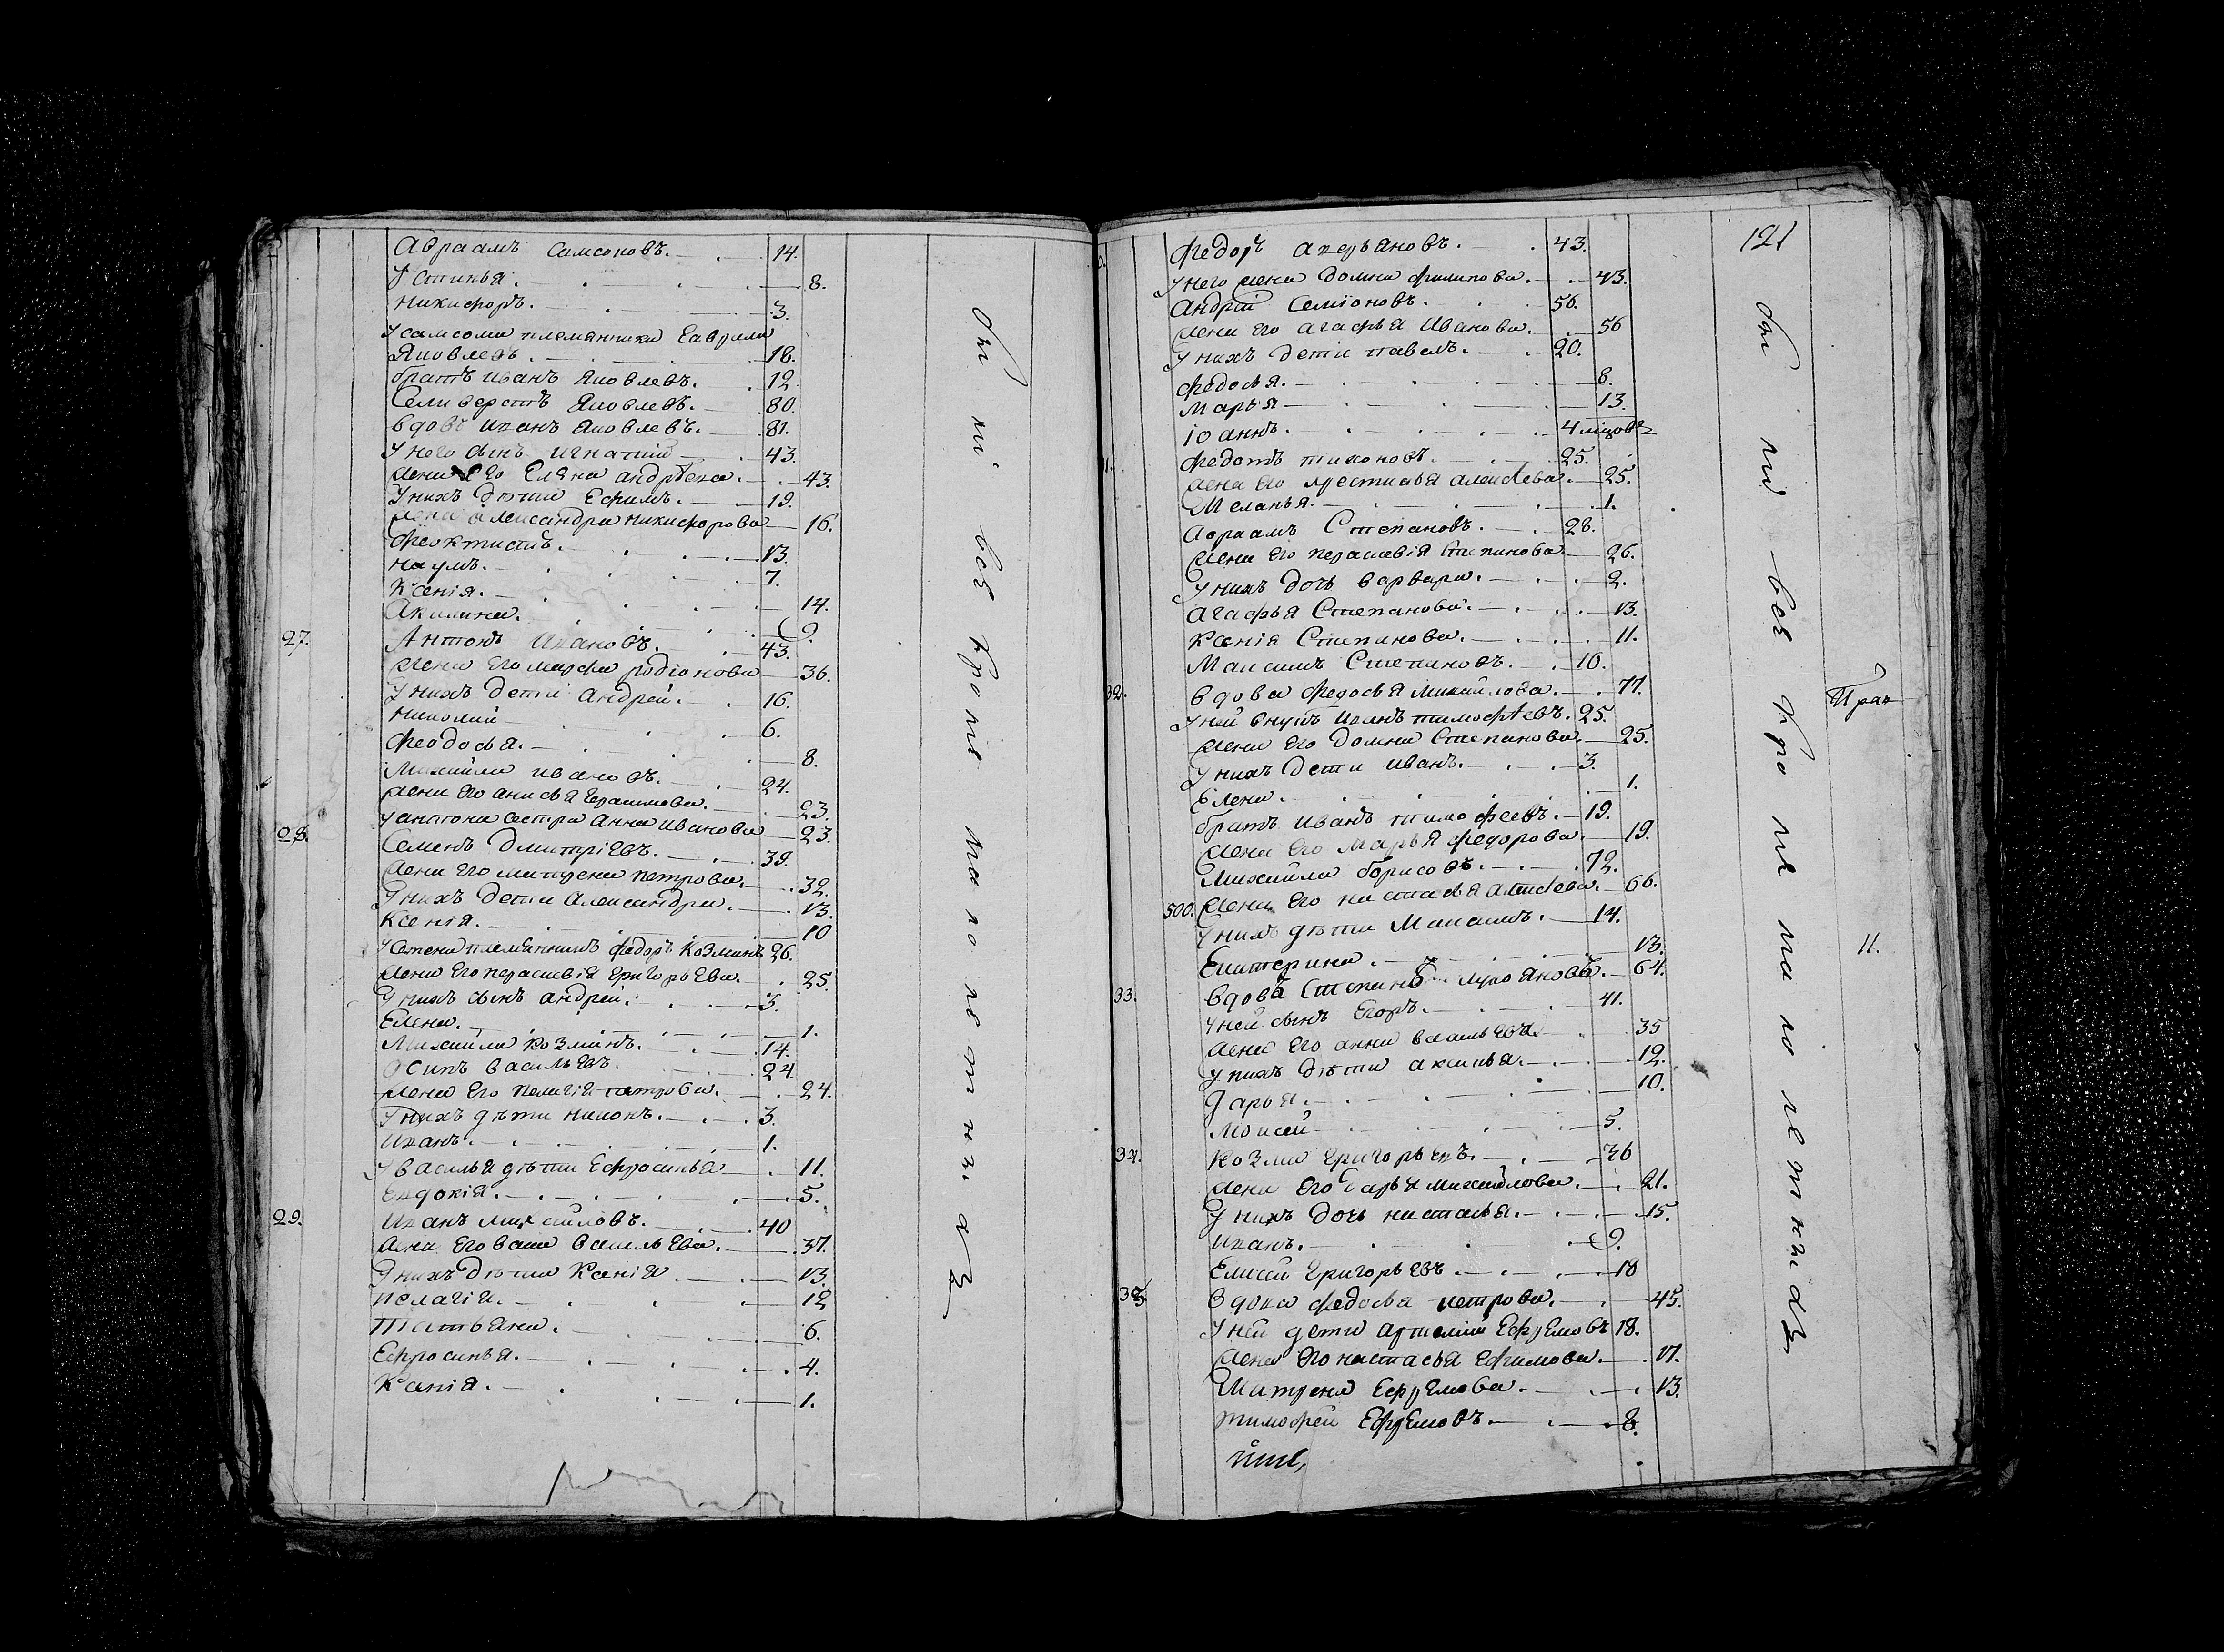 Авраамъ Самсоновъ. 14.
Устинья. 8.
Никифоръ. 3.
У самсона племянники Гаврила
Яковлевъ. 18.
братъ иванъ Яковлевъ. 12.
Селиверстъ Яковлевъ. 80.
вдовъ иванъ Яковлевъ. 81.
У него сынъ игнатий 43.
жена его Елена андрѣева. 43.
У нихъ дѣти Ефимъ. 19.
жена александра никифорова 16.
Феоктистъ. 13.
наумъ. 7.
Ксенія. 14.
Акилина. 9.
27. Антонъ Ивановъ. 43.
жена его марфа родіонова 36.
У нихъ дети андрей. 16.
николай 6.
феодосья. 8.
Михайла ивановъ. 24.
жена его анисья Герасимова. 23.
у антона сестра анна иванова 23.
28. Семенъ Дмитріевъ. 39.
жена его матрена петрова. 32.
У нихъ дети александра. 13.
Ксенія. 10
У семена племянникъ федоръ Козминъ 26.
жена его парасковія григорьева. 25.
У нихъ сынъ андрей. 3.
Елена. 1.
Михайла козминъ. 14.
Осипъ васильевъ. 24.
жена его пелагія петрова. 24.
У нихъ дѣти никонъ. 3.
иванъ. 1.
У василья дѣти Ефросинья 11.
Евдокія. 5.
29. иванъ михайловъ. 40
жена его васильева. 37.
У нихъ дѣти Ксенія 13.
пелагія. 12
Татьяна. 6.
Ефросинья. 4.
Ксенія. 1.
были всѣ кромѣ малолетнихъ
121
Федоръ аверьяновъ. 43.
У него жена домна филипова. 43.
андрей Семіоновъ. 56.
жена его агафья иванова. 56
У нихъ дети павелъ. 20.
федосья. 8.
Марья 13.
іоаннъ. 4
федотъ тихоновъ. 25.
жена его алексѣева. 25.
Меланья. 1.
Авраамъ Степановъ. 28.
жена его парасковія Степанова 26.
У нихъ дочь варвара. 2.
агафья Степанова. 13.
ксенія Степанова. 11.
Максимъ Степановъ. 10.
32. вдова федосья михайлова. 77.
У ней внукъ иванъ тимофѣевъ. 25.
жена его домна Степанова. 25.
У нихъ дети иванъ. 3.
Елена. 1.
братъ иванъ тимофеевъ. 19.
жена его марья федорова. 19.
Михайла борисовъ. 72.
500. жена его настасья алексѣева. 66.
У нихъ дѣти Максимъ. 14.
Екатерина. 13.
33. вдова лукоянова. 64.
У ней сынъ Егоръ. 41.
жена его анна васильева. 35
У нихъ дѣти аксинья. 12.
Дарья. 10.
Моисей 5.
34. козма григорьевъ. 36
жена его дарья михайлова. 21.
У нихъ дочь настасья. 15.
иванъ. 9.
Елисей григорьевъ. 18
35 вдова федосья петрова. 45.
У ней дети артемий Ефремовъ 18.
жена его настасья Ефимова. 17.
Матрена Ефремова. 13.
тимофей Ефремовъ. 8.
были всѣ кромѣ малолетнихъ
11.